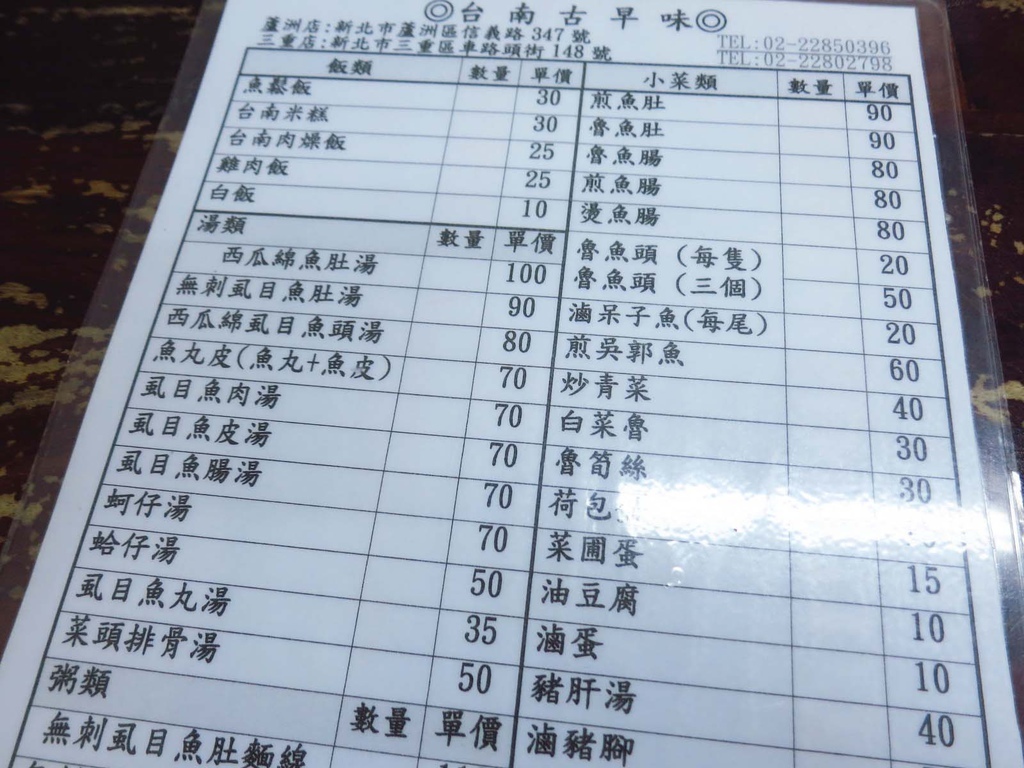 ◎台南古早味◎
蘆洲店:新北市蘆洲區信義路 347 號 TEL:02-22850396
三重店:新北市三重區車路頭街 148 號 TEL:02-22802798
飯類 數量 單價
魚鬆飯 30
台南米糕 30
台南肉燥飯 25
雞肉飯 25
白飯 10
湯類 數量 單價
西瓜綿魚肚湯 100
無刺虱目魚肚湯 90
西瓜綿虱目魚頭湯 80
魚丸皮(魚丸+魚皮) 70
虱目魚肉湯 70
虱目魚皮湯 70
虱目魚腸湯 70
蚵仔湯 70
蛤仔湯 50
虱目魚丸湯 35
菜頭排骨湯 50
粥類 數量 單價
無刺虱目魚肚麵線
小菜類 數量 單價
煎魚肚 90
魯魚肚 90
魯魚腸 80
煎魚腸 80
燙魚腸 80
魯魚頭 (每隻) 20
魯魚頭 (三個) 50
滷呆子魚(每尾) 20
煎吳郭魚 60
炒青菜 40
白菜魯 30
魯筍絲 30
荷包
菜圃蛋 15
油豆腐 10
滷蛋 10
豬肝湯 40
滷豬腳